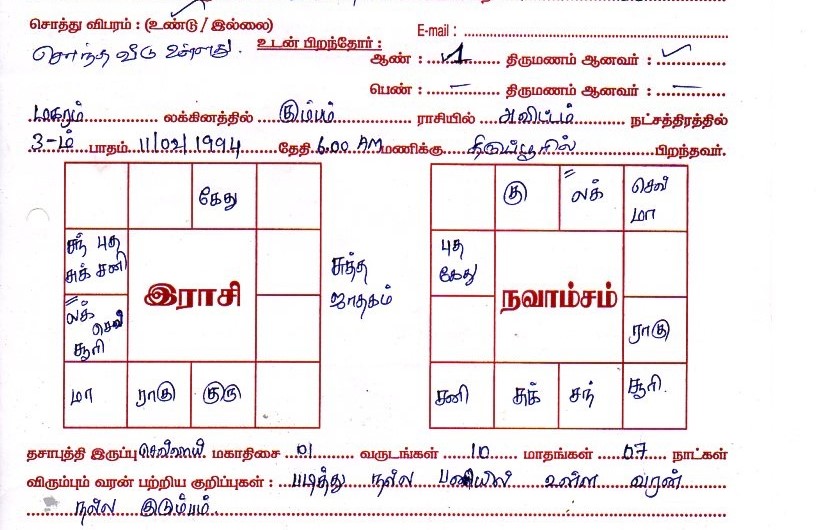 சொத்து விபரம் : (உண்டு / இல்லை)
E-mail :
சொந்த வீடு உள்ளது. உடன் பிறந்தோர் :
ஆண் : 1 திருமணம் ஆனவர் : ✓
பெண் : – திருமணம் ஆனவர் : –
மகரம் லக்கினத்தில் கும்பம் ராசியில் அவிட்டம் நட்சத்திரத்தில்
3-ம் பாதம் 11/02/1994 தேதி 6.00 AM மணிக்கு திருப்பூரில் பிறந்தவர்.
கேது
சந் புத
சுக் சனி
இராசி
லக்
செவ்
சூரி
மா ராகு குரு
சுத்த
ஜாதகம்
கு லக் செவ்
மா
புத
கேது
நவாம்சம்
ராகு
சனி சுக் சந் சூரி.
தசாபுத்தி இருப்பு செவ்வாய் மகாதிசை 01 வருடங்கள் 10 மாதங்கள் 07 நாட்கள்
விரும்பும் வரன் பற்றிய குறிப்புகள் : படித்து நல்ல பணியில் உள்ள வரன்
நல்ல குடும்பம்.